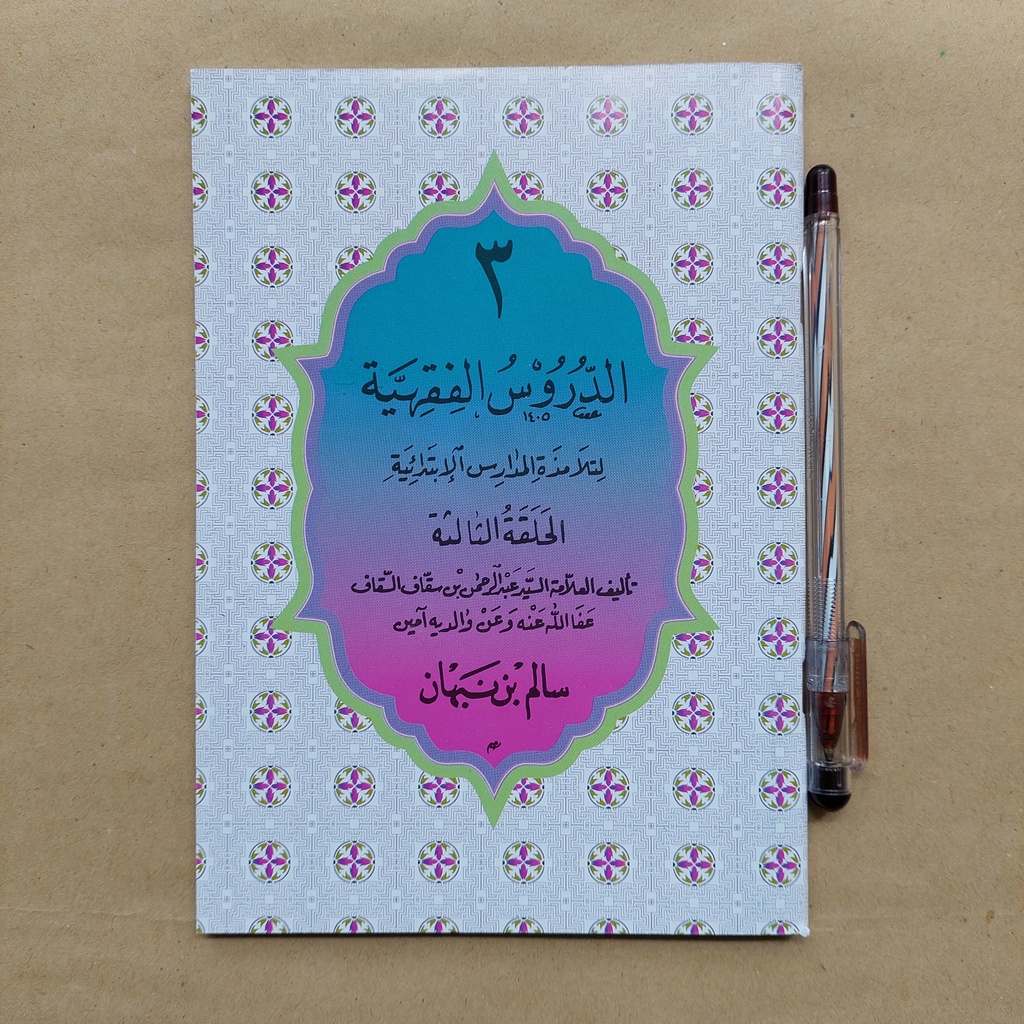 ٣
الدُّرُوْسُ الفِقْهِيَّة
١٤٠٥
لِتَلَامذَةِ المَدَارِس الْإبْتِدَائِيَّةِ
الحَلَقَةُ الثَّالثة
تأليف العلاّمة السَّيّد عَبْد الرحمٰن بْن سقَّاف السّقاف
عَفَا اللّٰه عَنْه وَعَنْ وَالديه آمين
سالم بْن نَبْهَان